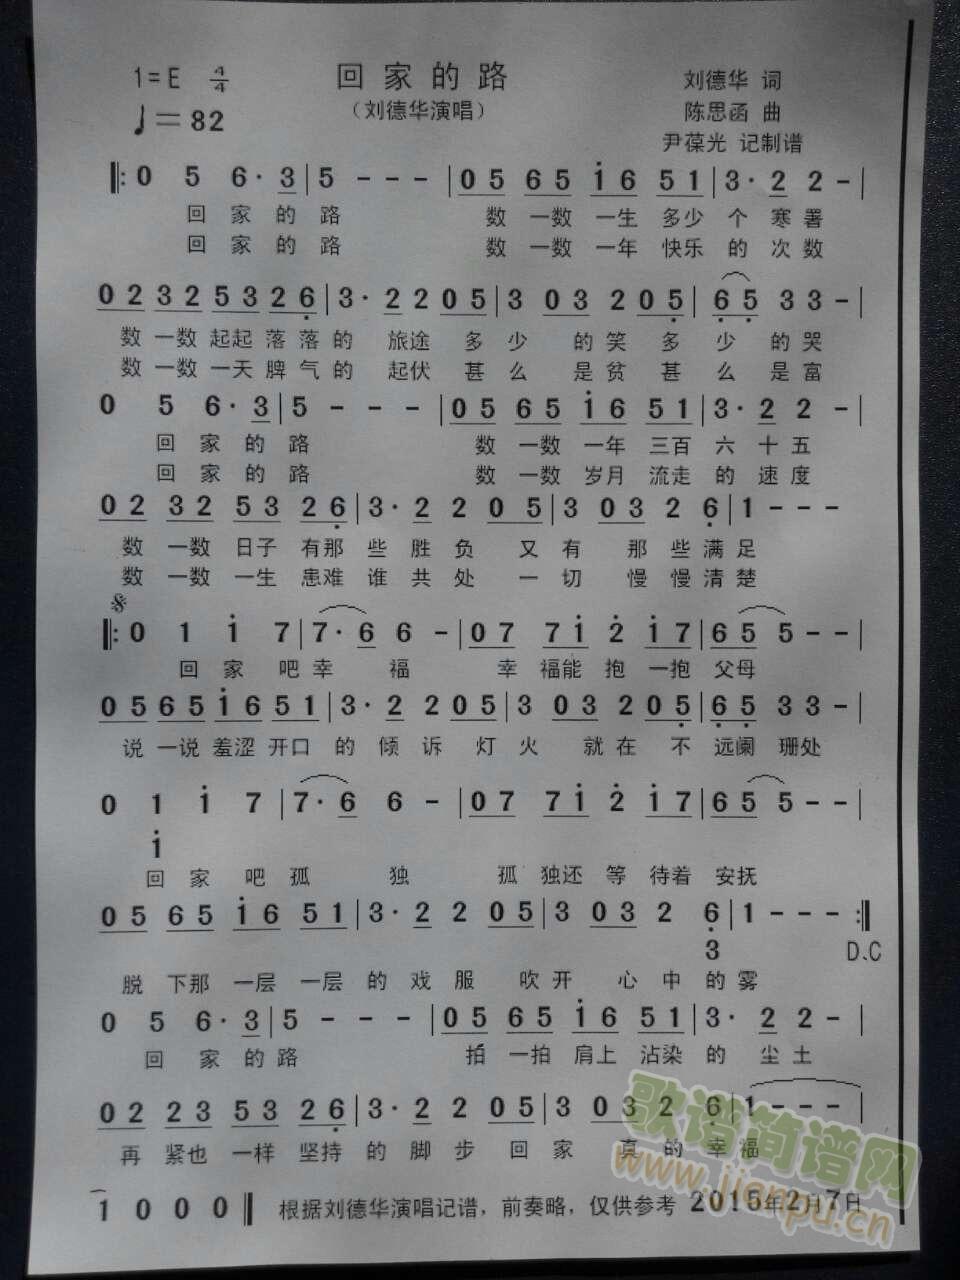 1=E 4/4 回家的路 刘德华 词
♩=82 （刘德华演唱） 陈思函 曲
尹葆光 记制谱
‖: 0 5 6· 3 | 5 - - - | 0 5 6 5 i 6 5 1 | 3· 2 2 - |
回 家 的 路 数 一数 一生 多少 个 寒 署
回 家 的 路 数 一数 一年 快乐 的 次 数
0 2 3 2 5 3 2 6 | 3· 2 2 0 5 | 3 0 3 2 0 5 | 6 5 3 3 - |
数 一数 起起 落 落 的 旅途 多 少 的 笑 多 少 的 哭
数 一数 一天 脾 气 的 起伏 甚 么 是 贫 甚 么 是 富
0 5 6· 3 | 5 - - - | 0 5 6 5 i 6 5 1 | 3· 2 2 - |
回 家 的 路 数 一数 一年 三百 六 十 五
回 家 的 路 数 一数 岁月 流走 的 速 度
0 2 3 2 5 3 2 6 | 3· 2 2 0 5 | 3 0 3 2 6 | 1 - - -
数 一数 日子 有那 些 胜 负 又 有 那 些 满 足
数 一数 一生 患难 谁 共 处 一 切 慢 慢 清 楚
‖: 0 1 i 7 | 7· 6 6 - | 0 7 7 i 2 i 7 | 6 5 5 - - |
回 家 吧 幸 福 幸 福能 抱 一抱 父母
0 5 6 5 i 6 5 1 | 3· 2 2 0 5 | 3 0 3 2 0 5 | 6 5 3 3 - |
说 一说 羞涩 开口 的 倾 诉 灯 火 就 在 不 远阑 珊处
0 1 i 7 | 7· 6 6 - | 0 7 7 i 2 i 7 | 6 5 5 - - |
i
回 家 吧 孤 独 孤 独还 等 待着 安抚
0 5 6 5 i 6 5 1 | 3· 2 2 0 5 | 3 0 3 2 6 | 1 - - - :‖
3 D、C
脱 下那 一层 一层 的 戏 服 吹 开 心 中 的 雾
0 5 6· 3 | 5 - - - | 0 5 6 5 i 6 5 1 | 3· 2 2 - |
回 家 的 路 拍 一拍 肩上 沾染 的 尘 土
0 2 2 3 5 3 2 6 | 3· 2 2 0 5 | 3 0 3 2 6 | 1 - - - |
再 紧也 一样 坚持 的 脚 步 回 家 真 的 幸 福
1 0 0 0 ‖ 根据刘德华演唱记谱，前奏略，仅供参考 2015年2月7日
歌谱简谱网
www.jianpu.cn